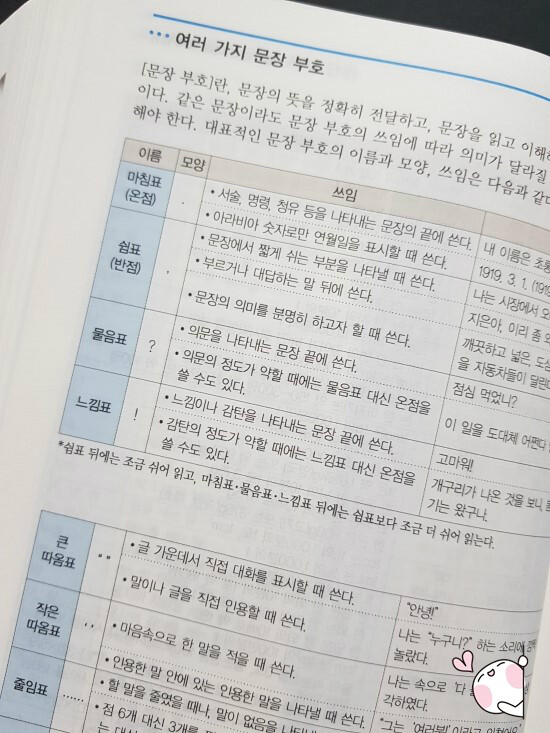 여러 가지 문장 부호
[문장 부호]란, 문장의 뜻을 정확히 전달하고, 문장을 읽고
이다. 같은 문장이라도 문장 부호의 쓰임에 따라 의미가 달라질
해야 한다. 대표적인 문장 부호의 이름과 모양, 쓰임은 다음과
이름 모양 쓰임
마침표
(온점)
.
• 서술, 명령, 청유 등을 나타내는 문장의 끝에 쓴다.
내 이름은
• 아라비아 숫자로만 연월일을 표시할 때 쓴다.
1919. 3. 1.
쉼표
(반점)
,
• 문장에서 짧게 쉬는 부분을 나타낼 때 쓴다.
나는 시장에서
• 부르거나 대답하는 말 뒤에 쓴다.
지은아, 이리 좀
• 문장의 의미를 분명히 하고자 할 때 쓴다.
깨끗하고 넓은
을 자동차들이
물음표
?
• 의문을 나타내는 문장 끝에 쓴다.
점심 먹었니?
• 의문의 정도가 약할 때에는 물음표 대신 온점을
쓸 수도 있다.
이 일을 도대체 어쩐다
느낌표
!
• 느낌이나 감탄을 나타내는 문장 끝에 쓴다.
고마워!
• 감탄의 정도가 약할 때에는 느낌표 대신 온점을
쓸 수도 있다.
개구리가 나온 것을 보니,
기는 왔구나.
*쉼표 뒤에는 조금 쉬어 읽고, 마침표·물음표·느낌표 뒤에는 쉼표보다 조금 더 쉬어 읽는다.
큰
따옴표
" "
• 글 가운데서 직접 대화를 표시할 때 쓴다.
"안녕!"
• 말이나 글을 직접 인용할 때 쓴다.
나는 "누구니?" 하는 소리에
놀랐다.
작은
따옴표
' '
• 마음속으로 한 말을 적을 때 쓴다.
나는 속으로 '다
각하였다.
• 인용한 말 안에 있는 인용한 말을 나타낼 때 쓴다.
"그는
줄임표
……
• 할 말을 줄였을 때나, 말이 없음을
• 점 6개 대신 3개를